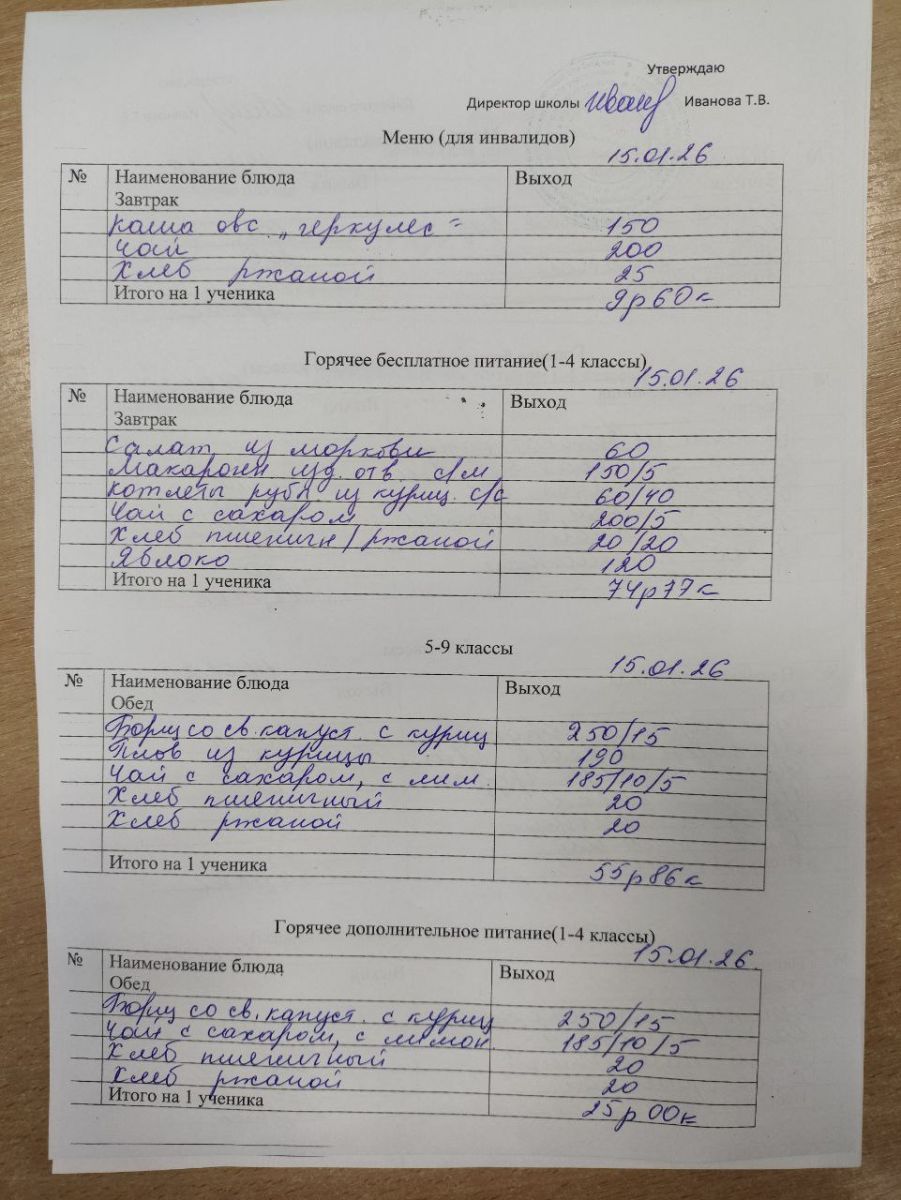 Утверждаю
Директор школы Иванова Т.В.
Меню (для инвалидов)
15.01.26
№ Наименование блюда Выход
Завтрак
каша овс „геркулес" 150
Чай 200
Хлеб ржаной 25
Итого на 1 ученика 9р60к
Горячее бесплатное питание(1-4 классы)
15.01.26
№ Наименование блюда Выход
Завтрак
Салат из моркови 60
Макарон изд. отв с/м 150/5
Котлеты рубл из куриц. с/с 60/40
Чай с сахаром 200/5
Хлеб пшеничн/ржаной 20/20
Яблоко 120
Итого на 1 ученика 74р77к
5-9 классы
15.01.26
№ Наименование блюда Выход
Обед
Борщ со св.капуст. с куриц 250/15
Плов из курицы 190
Чай с сахаром, с лим. 185/10/5
Хлеб пшеничный 20
Хлеб ржаной 20
Итого на 1 ученика 55р86к
Горячее дополнительное питание(1-4 классы)
15.01.26.
№ Наименование блюда Выход
Обед
Борщ со св.капуст. с куриц 250/15
Чай с сахаром, с лимон. 185/10/5
Хлеб пшеничный 20
Хлеб ржаной 20
Итого на 1 ученика 25р00к